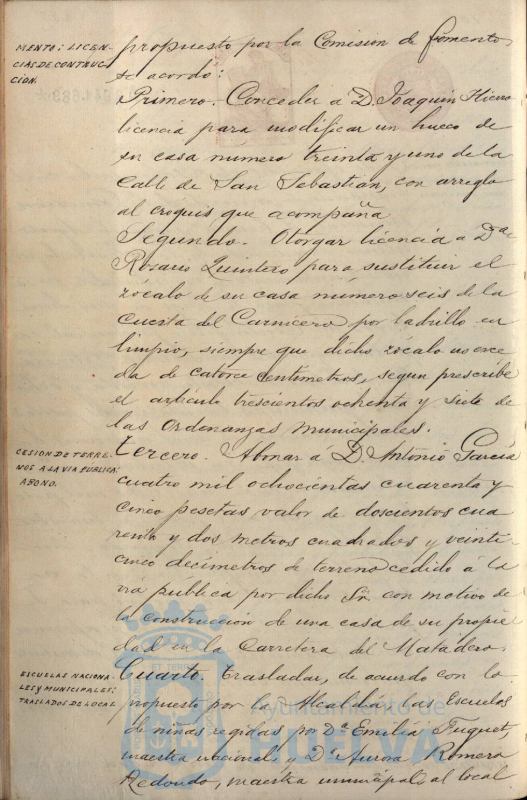 MENTO: LICEN-
CIAS DE CONTRUC-
CION.
propuesto por la Comision de fomento
se acordó:
Primero. Conceder a D. Joaquin Hierro
licencia para modificar un hueco de
su casa numero treinta y uno de la
Calle de San Sebastian, con arreglo
al croquis que acompaña
Segundo. Otorgar licencia a Dª
Rosario Quintero para sustituir el
zócalo de su casa número seis de la
Cuesta del Carnicero por ladrillo en
limpio, siempre que dicho zócalo no exce
da de catorce centimetros, segun prescribe
el articulo trescientos ochenta y siete de
las Ordenanzas municipales.
CESION DE TERRE-
NOS A LA VIA PUBLICA:
ABONO.
Tercero. Abonar á D. Antonio García
cuatro mil ochocientas cuarenta y
cinco pesetas valor de doscientos cua
renta y dos metros cuadrados y veinti
cinco decimetros de terreno cedido á la
via pública por dicho Sr. con motivo de
la construccion de una casa de su propie
dad en la Carretera del Matadero.
ESCUELAS NACIONA-
LES Y MUNICIPALES:
TRASLADOS DE LOCAL
Cuarto. Trasladar, de acuerdo con lo
propuesto por la Alcaldia, las Escuelas
de niñas regidas por Dª Emilia Fuguet,
maestra nacional y Dª Aurora Romero
Redondo, maestra municipal, al local
Ayuntamiento de
HUELVA